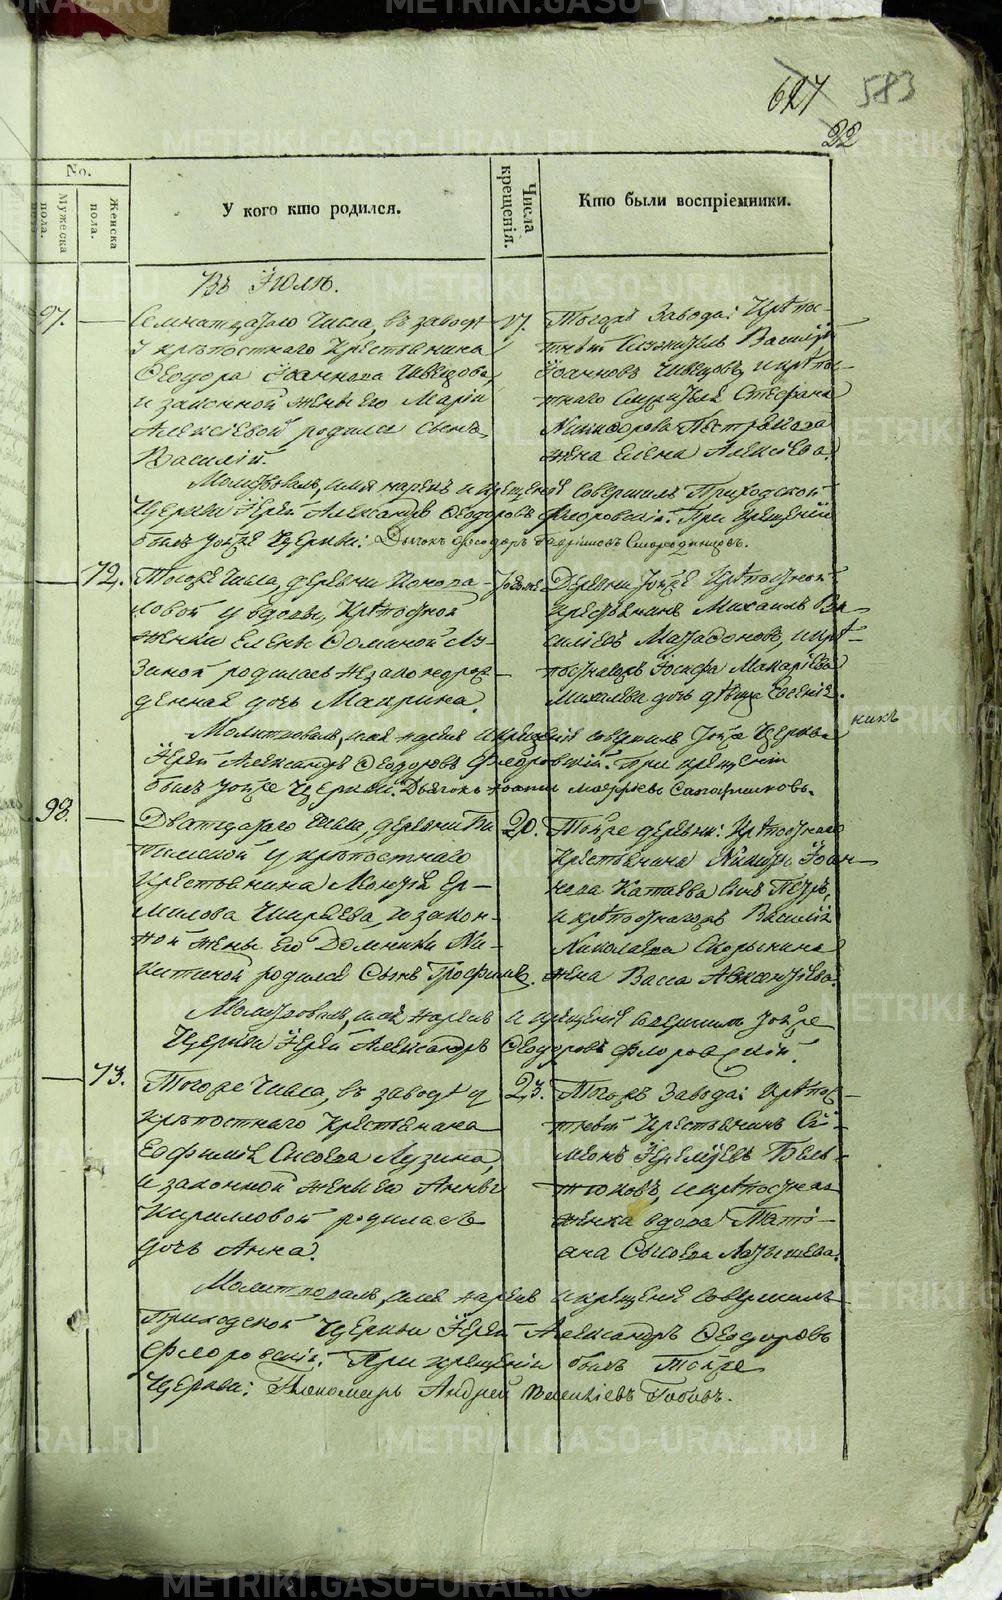 627 583
22
No.
Мужеска пола.
Женска пола.
У кого кто родился.
Числа крещенія.
Кто были воспріемники.
Въ Іюлѣ.
97. Семнатцатаго Числа, въ заводѣ
у крѣпостнаго Крестьянина
Ѳеодора Іоаннова Швецова,
и законной жены его Маріи
Алексѣевой родился сынъ,
Василій.
17. Тогожъ Завода: Крѣпос-
тной Василій
Іоанновъ Швецовъ, и крѣпос-
тнаго Служителя Стефана
Никифорова Пастухова
жена Елена Алексѣева.
Молитвовалъ, имя нарекъ и крещеніе совершилъ Приходской
Церкви Іерей Александръ Ѳеодоровъ Флоровскій. При крещеніи
былъ тойже Церкви: Дьячокъ Ѳеодоръ Смородинцовъ.
72. Тогоже Числа, деревни
у вдовы, Крѣпостной
женки Елены Ѳоминой Лу-
зиной родилась незаконорож-
денная дочь Макрина.
Деревни тойже Крѣпостной
Крестьянинъ Михаилъ Ва-
силіевъ и крѣ-
постнагожъ Іосифа Макаріева
дочь дѣвица Евгенія.
Молитвовалъ, имя нарекъ и крещеніе совершилъ тойже Церкви
Іерей Александръ Ѳеодоровъ Флоровскій. При крещеніи
былъ тойже Церкви: Дьячокъ Іоаннъ Сапожниковъ.
никъ
98. Дватцатаго Числа, деревни
у крѣпостнаго
Крестьянина Ер-
милова Ширяева, и закон-
ной жены его Домники Ни-
китиной родился Сынъ Трофимъ.
20. Тойже деревни: Крѣпостнаго
Крестьянина Никиты Іоан-
нова Катаева сынъ Петръ,
и крѣпостнагожъ Василія
Николаева Скорынина
жена Васса Авксентіева.
Молитвовалъ, имя нарекъ и крещеніе совершилъ тойже
Церкви Іерей Александръ Ѳеодоровъ Флоровскій.
73. Тогоже Числа, въ заводѣ у
крѣпостнаго Крестьянина
Евфимія Сысоева Лузина,
и законной жены его Анны
Кирилловой родилась
дочь Анна.
23. Тогожъ Завода: Крѣпос-
тной Крестьянинъ Си-
меонъ Іереміевъ Бель-
тюковъ, и крѣпостная
женка вдова Татіа-
на Сысоева
Молитвовалъ, имя нарекъ и крещеніе совершилъ
Приходской Церкви Іерей Александръ Ѳеодоровъ
Флоровскій. При крещеніи былъ тойже
Церкви: Пономарь Андрей
METRIKI.GASO-URAL.RU